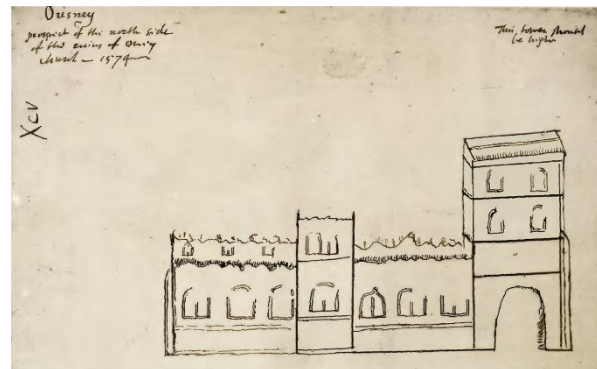 Ousney
prospect of the north side
of the ruins of
church — 1574
This tower should
be higher
XCV